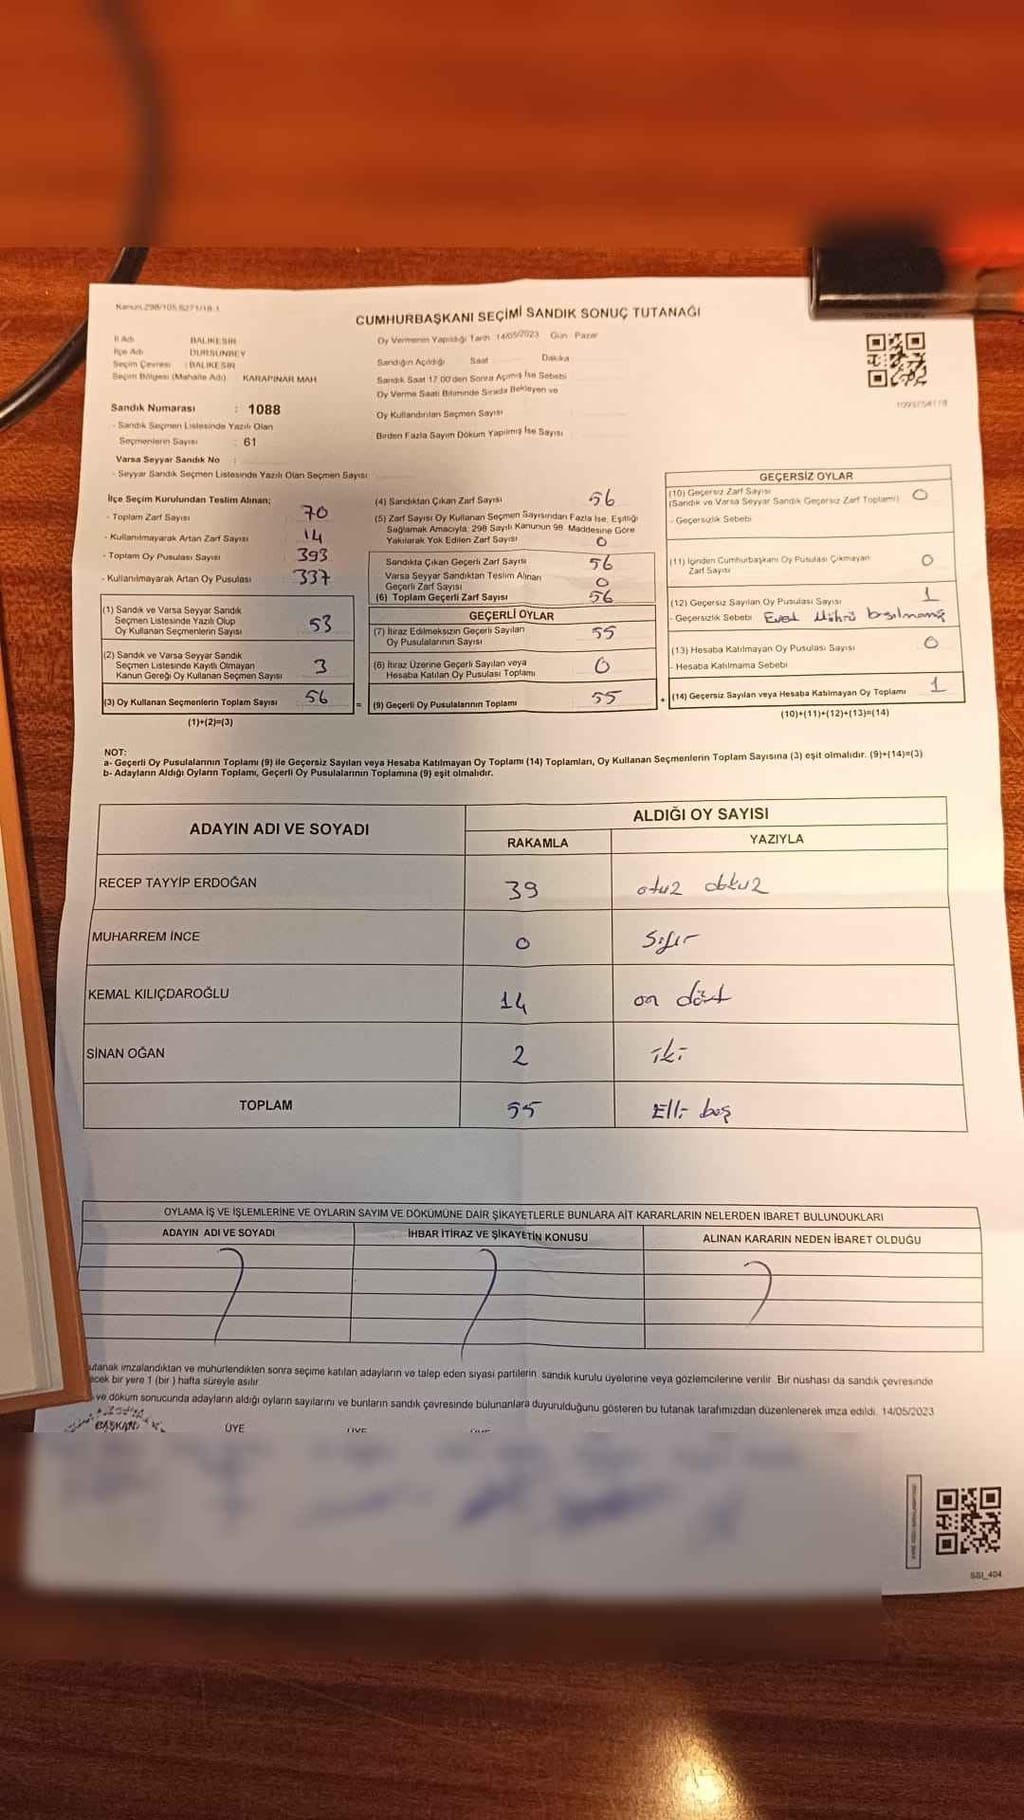 Kanun 298/105,6271/18-1
CUMHURBAŞKANI SEÇİMİ SANDIK SONUÇ TUTANAĞI
İl Adı BALIKESİR
İlçe Adı DURSUNBEY
Seçim Çevresi : BALIKESİR
Seçim Bölgesi (Mahalle Adı) KARAPINAR MAH
Sandık Numarası : 1088
- Sandık Seçmen Listesinde Yazılı Olan
Seçmenlerin Sayısı : 61
Varsa Seyyar Sandık No :
- Seyyar Sandık Seçmen Listesinde Yazılı Olan Seçmen Sayısı
Oy Vermenin Yapıldığı Tarih 14/05/2023 Gün : Pazar
Sandığın Açıldığı Saat Dakika
Sandık Saat 17.00'den Sonra Açımış İse Sebebi
Oy Verme Saati Bitiminde Sırada Bekleyen ve
Oy Kullandırılan Seçmen Sayısı
Birden Fazla Sayım Döküm Yapılmış İse Sayısı
İlçe Seçim Kurulundan Teslim Alınan;
- Toplam Zarf Sayısı 70
- Kullanılmayarak Artan Zarf Sayısı 14
- Toplam Oy Pusulası Sayısı 393
- Kullanılmayarak Artan Oy Pusulası 337
(1) Sandık ve Varsa Seyyar Sandık
Seçmen Listesinde Yazılı Olup
Oy Kullanan Seçmenlerin Sayısı 53
(2) Sandık ve Varsa Seyyar Sandık
Seçmen Listesinde Kayıtlı Olmayan
Kanun Gereği Oy Kullanan Seçmen Sayısı 3
(3) Oy Kullanan Seçmenlerin Toplam Sayısı 56
(1)+(2)=(3)
(4) Sandıktan Çıkan Zarf Sayısı 56
(5) Zarf Sayısı Oy Kullanan Seçmen Sayısından Fazla İse, Eşitliği
Sağlamak Amacıyla, 298 Sayılı Kanunun 98. Maddesine Göre
Yakılarak Yok Edilen Zarf Sayısı 0
Sandıkta Çıkan Geçerli Zarf Sayısı 56
Varsa Seyyar Sandıktan Teslim Alınan
Geçerli Zarf Sayısı 0
(6) Toplam Geçerli Zarf Sayısı 56
GEÇERLİ OYLAR
(7) İtiraz Edilmeksizin Geçerli Sayılan
Oy Pusulalarının Sayısı 55
(8) İtiraz Üzerine Geçerli Sayılan veya
Hesaba Katılan Oy Pusulası Toplamı 0
= (9) Geçerli Oy Pusulalarının Toplamı 55
GEÇERSİZ OYLAR
(10) Geçersiz Zarf Sayısı
(Sandık ve Varsa Seyyar Sandık Geçersiz Zarf Toplamı) 0
- Geçersizlik Sebebi
(11) İçinden Cumhurbaşkanı Oy Pusulası Çıkmayan
Zarf Sayısı 0
(12) Geçersiz Sayılan Oy Pusulası Sayısı 1
- Geçersizlik Sebebi Evet Mührü basılmamış
(13) Hesaba Katılmayan Oy Pusulası Sayısı 0
- Hesaba Katılmama Sebebi
+ (14) Geçersiz Sayılan veya Hesaba Katılmayan Oy Toplamı 1
(10)+(11)+(12)+(13)=(14)
NOT:
a- Geçerli Oy Pusulalarının Toplamı (9) ile Geçersiz Sayılan veya Hesaba Katılmayan Oy Toplamı (14) Toplamları, Oy Kullanan Seçmenlerin Toplam Sayısına (3) eşit olmalıdır. (9)+(14)=(3)
b- Adayların Aldığı Oyların Toplamı, Geçerli Oy Pusulalarının Toplamına (9) eşit olmalıdır.
ADAYIN ADI VE SOYADI
ALDIĞI OY SAYISI
RAKAMLA YAZIYLA
RECEP TAYYİP ERDOĞAN 39 otuz dokuz
MUHARREM İNCE 0 Sıfır
KEMAL KILIÇDAROĞLU 14 on dört
SİNAN OĞAN 2 iki
TOPLAM 55 Elli beş
OYLAMA İŞ VE İŞLEMLERİNE VE OYLARIN SAYIM VE DÖKÜMÜNE DAİR ŞİKAYETLERLE BUNLARA AİT KARARLARIN NELERDEN İBARET BULUNDUKLARI
ADAYIN ADI VE SOYADI İHBAR İTİRAZ VE ŞİKAYETİN KONUSU ALINAN KARARIN NEDEN İBARET OLDUĞU
utanak imzalandıktan ve mühürlendikten sonra seçime katılan adayların ve talep eden siyasi partilerin sandık kurulu üyelerine veya gözlemcilerine verilir. Bir nüshası da sandık çevresinde
ecek bir yere 1 (bir) hafta süreyle asılır.
ve döküm sonucunda adayların aldığı oyların sayılarını ve bunların sandık çevresinde bulunanlara duyurulduğunu gösteren bu tutanak tarafımızdan düzenlenerek imza edildi. 14/05/2023
BAŞKAN ÜYE
SSI_404